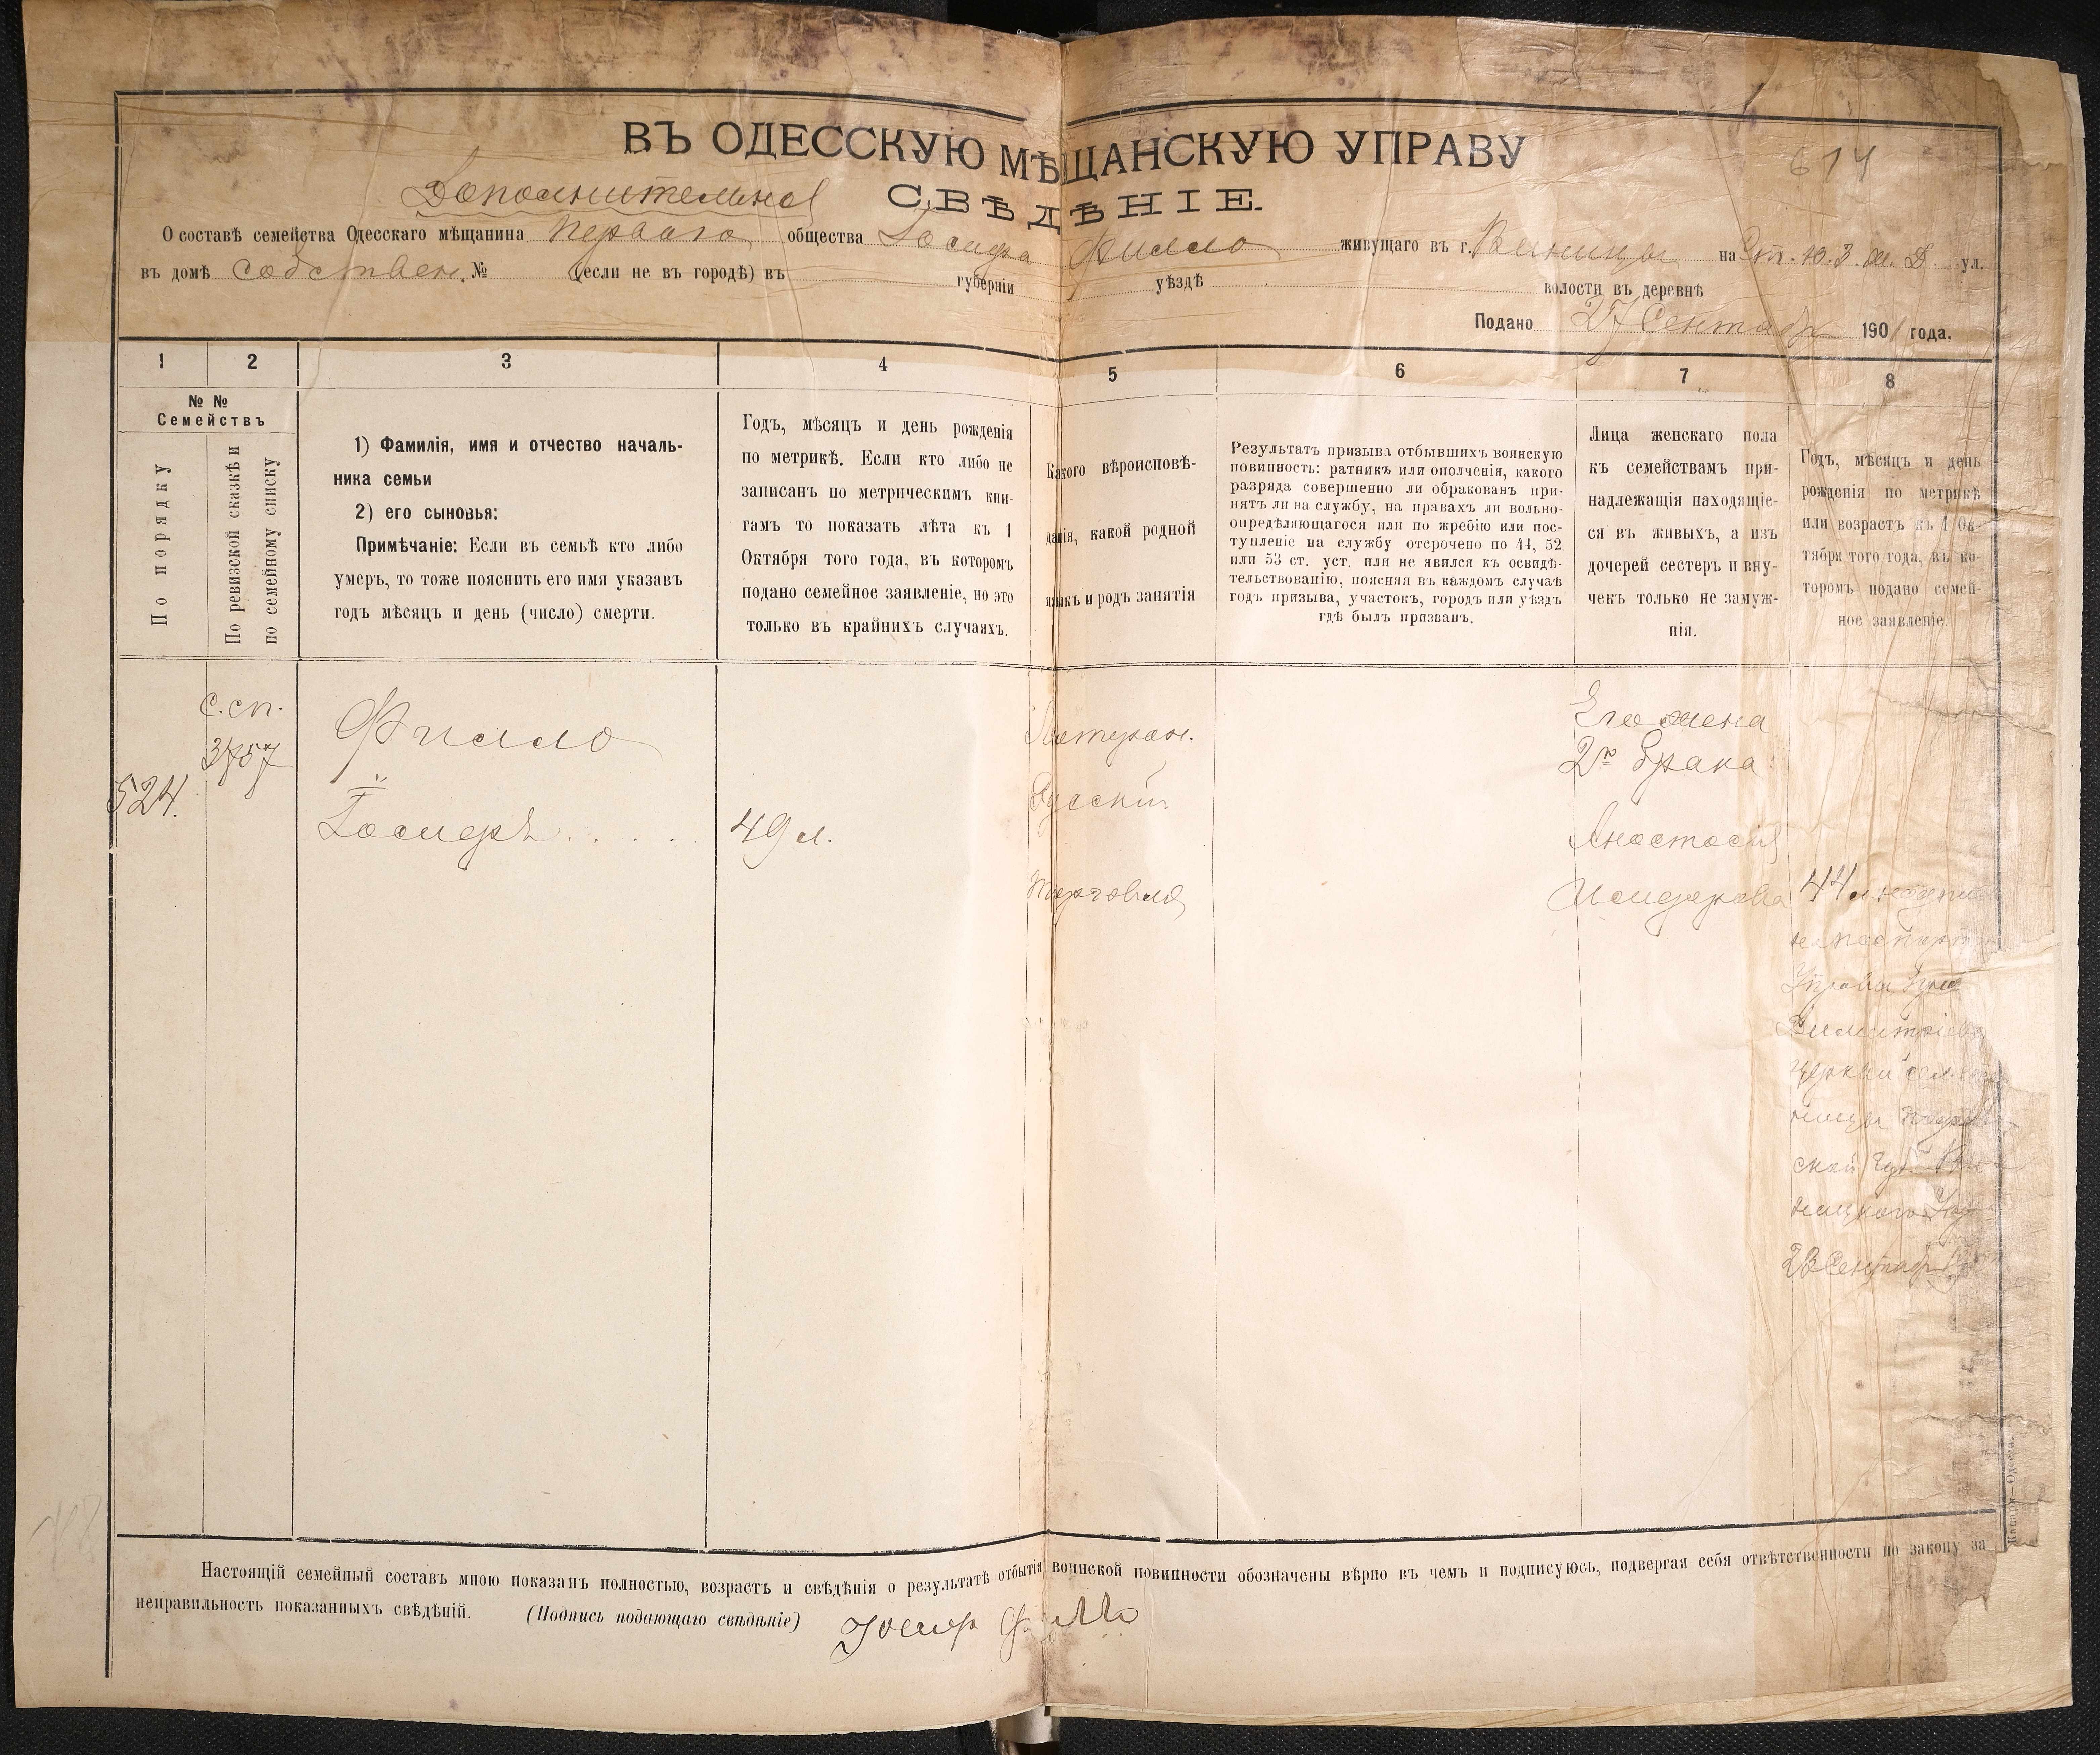 ВЪ ОДЕССКУЮ МѢЩАНСКУЮ УПРАВУ
614
Дополнительное
СВѢДѢНІЕ.
О составѣ семейства Одесскаго мѣщанина Перваго общества Іосифа Филло живущаго въ г. Винницы на ул.
въ домѣ собствен. № (если не въ городѣ) въ губерніи уѣздѣ волости въ деревнѣ
Подано 27 Сентября 1901 года,
1 2 3 4 5 6 7 8
№ №
Семействъ
По порядку
По ревизской сказкѣ и
по семейному списку
1) Фамилія, имя и отчество началь-
ника семьи
2) его сыновья:
Примѣчаніе: Если въ семьѣ кто либо
умеръ, то тоже пояснить его имя указавъ
годъ мѣсяцъ и день (число) смерти.
Годъ, мѣсяцъ и день рожденія
по метрикѣ. Если кто либо не
записанъ по метрическимъ кни-
гамъ то показать лѣта къ 1
Октября того года, въ которомъ
подано семейное заявленіе, но это
только въ крайнихъ случаяхъ.
Какого вѣроисповѣ-
данія, какой родной
языкъ и родъ занятія
Результатъ призыва отбывшихъ воинскую
повинность: ратникъ или ополченія, какого
разряда совершенно ли обракованъ при-
нятъ ли на службу, на правахъ ли вольно-
опредѣляющагося или по жребію или пос-
тупленіе на службу отсрочено по 44, 52
или 53 ст. уст. или не явился къ освидѣ-
тельствованію, поясняя въ каждомъ случаѣ
годъ призыва, участокъ, городъ или уѣздъ
гдѣ былъ призванъ.
Лица женскаго пола
къ семействамъ при-
надлежащія находящіе-
ся въ живыхъ, а изъ
дочерей сестеръ и вну-
чекъ только не замуж-
нія.
Годъ, мѣсяцъ и день
рожденія по метрикѣ
или возрастъ къ 1 Ок-
тября того года, въ ко-
торомъ подано семей-
ное заявленіе.
с.сп.
3757
524.
Филло
Іосифъ
49 л.
Лютеран.
Русскій
торговля
Его жена
2го брака
Анастасія
Исидорова
44 л.
церкви
ской губ.
23 Сентяб
Одесса.
Настоящій семейный составъ мною показанъ полностью, возрастъ и свѣдѣнія о результатѣ отбытія воинской повинности обозначены вѣрно въ чемъ и подписуюсь, подвергая себя отвѣтственности по закону за
неправильность показанныхъ свѣдѣній. (Подпись подающаго свѣдѣніе) Іосиф Филло